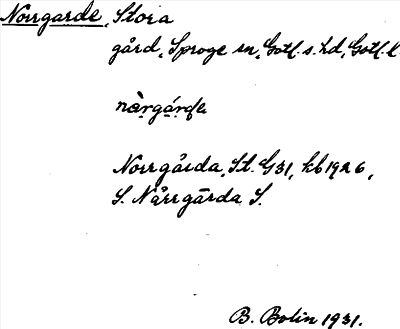 Norrgarde, Stora
gård, Sproge sn, Gotl. s. hd, Gotl. l
nàrgárdɐ
Norrgårda, St. G31, kb 1926,
S. Nårrgārda S.
B. Bolin 1931.